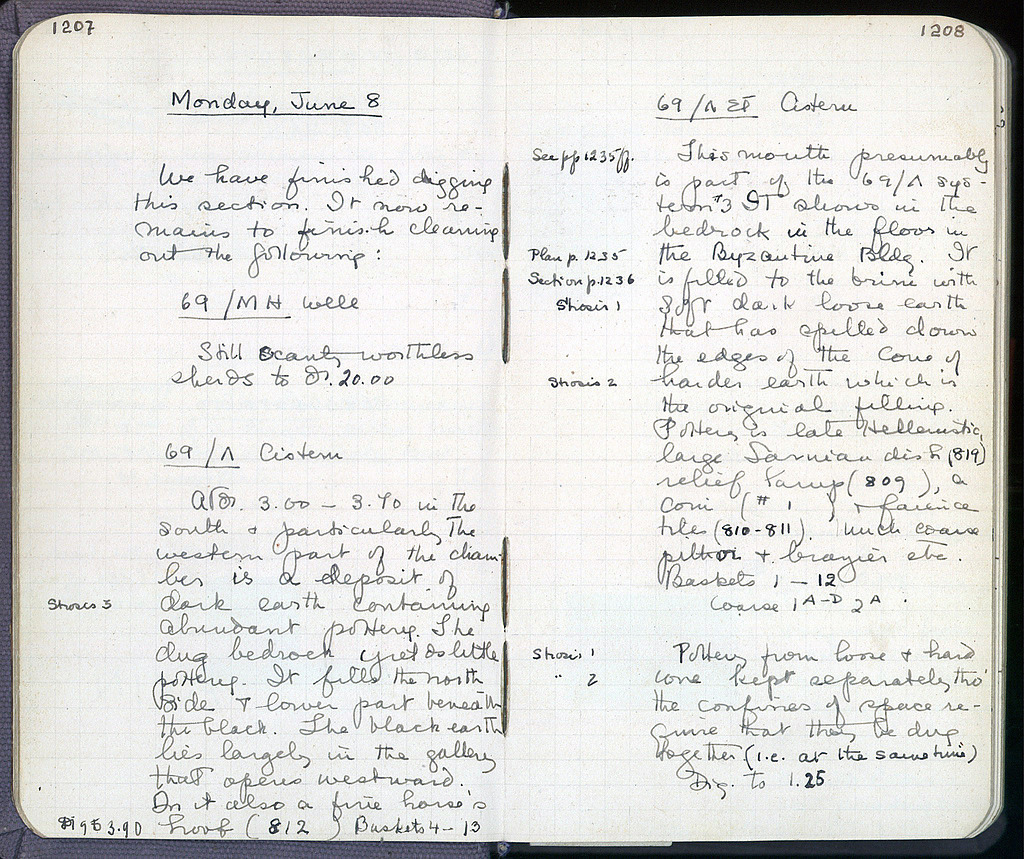 1207
Monday, June 8
We have finished digging
this section. It now re-
mains to finish cleaning
out the following:
69/ΜΗ well
Still scanty worthless
sherds to δr. 20.00
69/Λ Cistern
At δr. 3.00 – 3.40 in the
south + particularly the
western part of the cham-
ber is a deposit of
Strosis 3 dark earth containing
abundant pottery. The
dug bedrock yields little
pottery. It fills the north
side + lower part beneath
the black. The black earth
lies largely in the gallery
that opens westward.
In it also a fine horse's
3.90 hoof (812 ) Baskets 4-13
1208
69/Λ ΣΤ Cistern
See pp 1235ff. This mouth presumably
is part of the 69/Λ sys-
tem. It shows in the
bedrock in the floor in
Plan p. 1235 the Byzantine Bldg. It
Section p. 1236 is filled to the brim with
Strosis 1 soft dark loose earth
that has spilled down
the edges of the cone of
Strosis 2 harder earth which is
the original filling.
Pottery is late Hellenistic,
large Samian dish (819)
relief lamp (809), a
coin (# 1 ) + faience
tiles (810-811). Much coarse
pithoi + brazier etc.
Baskets 1 – 12
Coarse 1 A-D 2 A.
Strosis 1 Pottery from loose + hard
" 2 cone kept separately, tho'
the confines of space re-
quire that they be dug
together (i.e. at the same time)
Dig. to 1.25